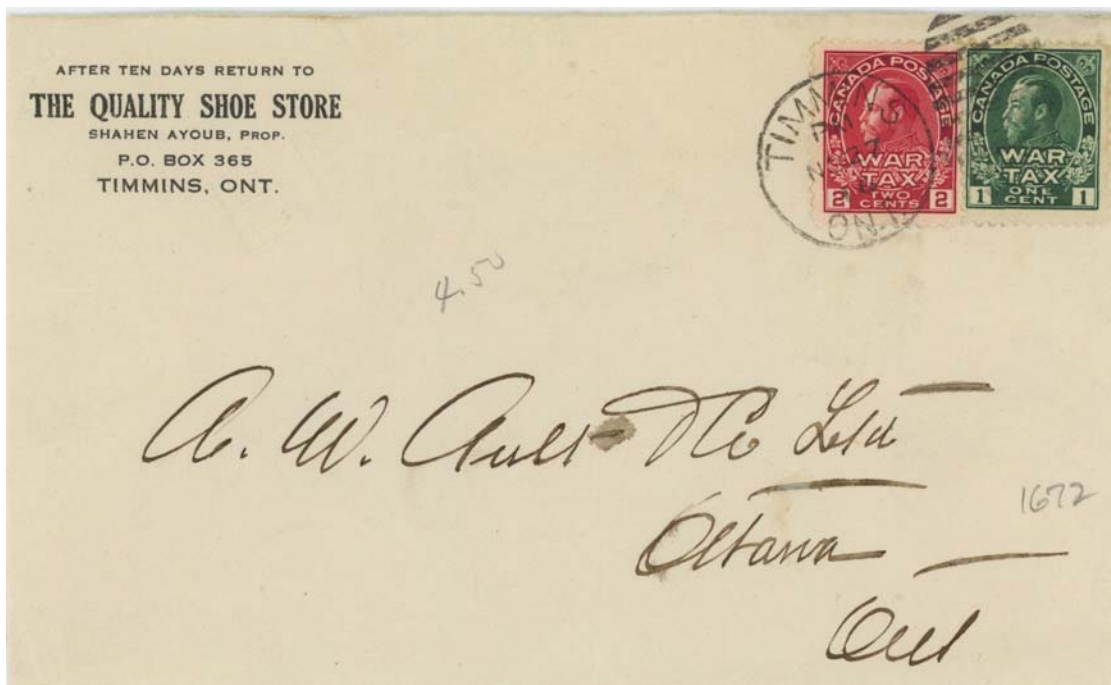 AFTER TEN DAYS RETURN TO
THE QUALITY SHOE STORE
SHAHEN AYOUB, PROP.
P.O. BOX 365
TIMMINS, ONT.
CANADA POSTAGE
WAR
TAX
TWO
2 CENTS 2
CANADA POSTAGE
WAR
TAX
ONE
1 CENT 1
TIMMINS
ONT
4.50
A. W. Ault & Co Ltd
1672
Ottawa
Ont